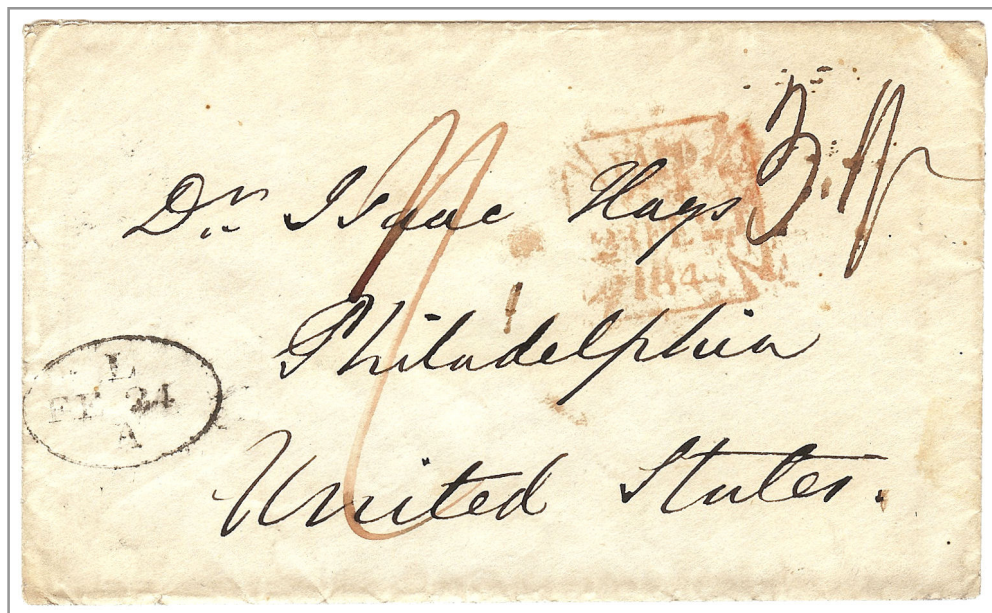 Dr. Isaac Hays
Philadelphia
United States.
L
FE 24
A
184